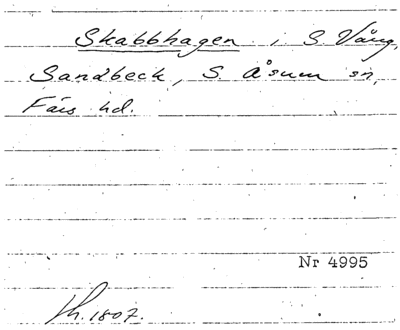 Skabbhagen i S. Vång,
Sandbeck, S. Åsum sn,
Färs hd.
Nr 4995
Lh. 1807.